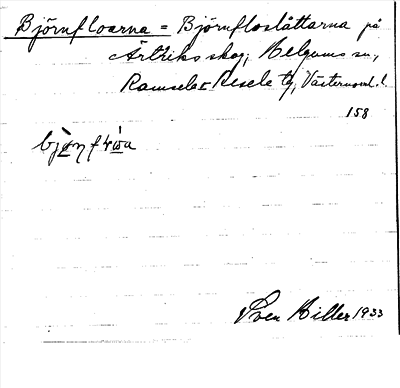 Björnfloarna = Björnfloslåttarna på
Ärtriks skog, Helgums sn,
Ramsele o Resele tg, Västernorrl. l.
158
Sven Hiller 1933